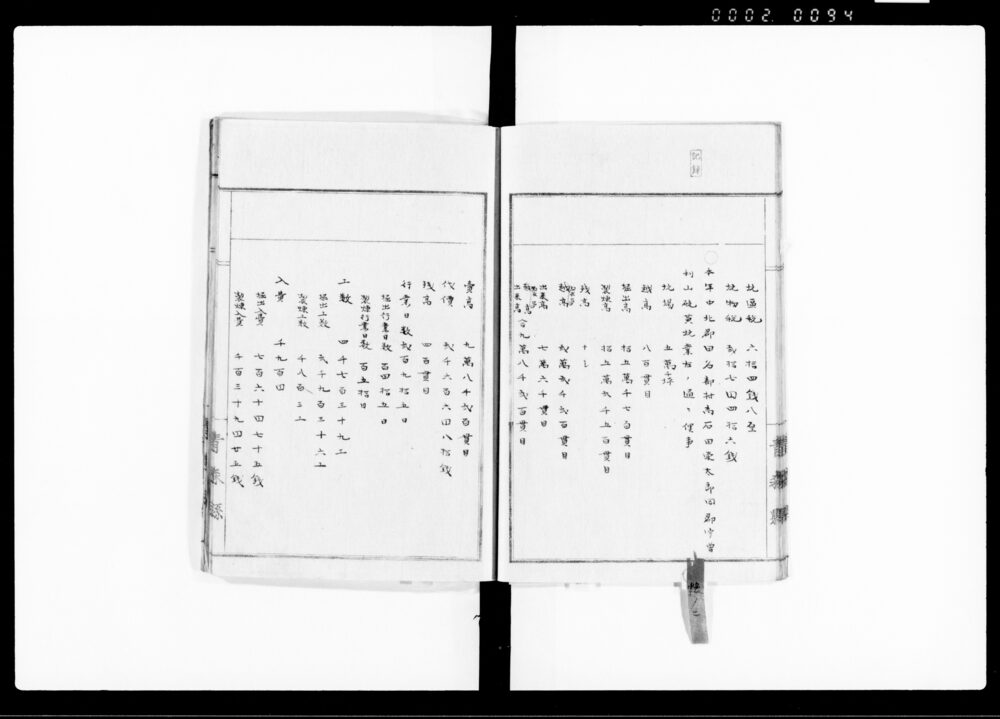 0002.0094
記録
坑區税 六拾四錢八厘
坑物税 弐拾七円四拾六錢
本年中北郡田名部村髙石田栄太郎同郡字曽
利山硫黄坑業
坑場 五萬千坪
越高 八百貫目
掘出高 拾五萬千七百貫目
製煉高 拾五萬弐千五百貫目
残高
越高 弐萬弐千弐百貫目
出来高 七萬六千貫目
出来高 合九萬八千弐百貫目
青森縣
賣高 九萬八千弐百貫目
代價 弐千六百六円八拾錢
残高 四百貫目
行業日数 弐百九拾五日
掘出行業日数 百四拾五日
製煉行業日数 百五拾日
工数 四千七百三十九工
掘出工数 弐千九百三十六工
製煉工数 千八百三工
入費 千九百円
掘出入費 七百六十円七十五錢
製煉入費 千百三十九円廿五錢
青森縣